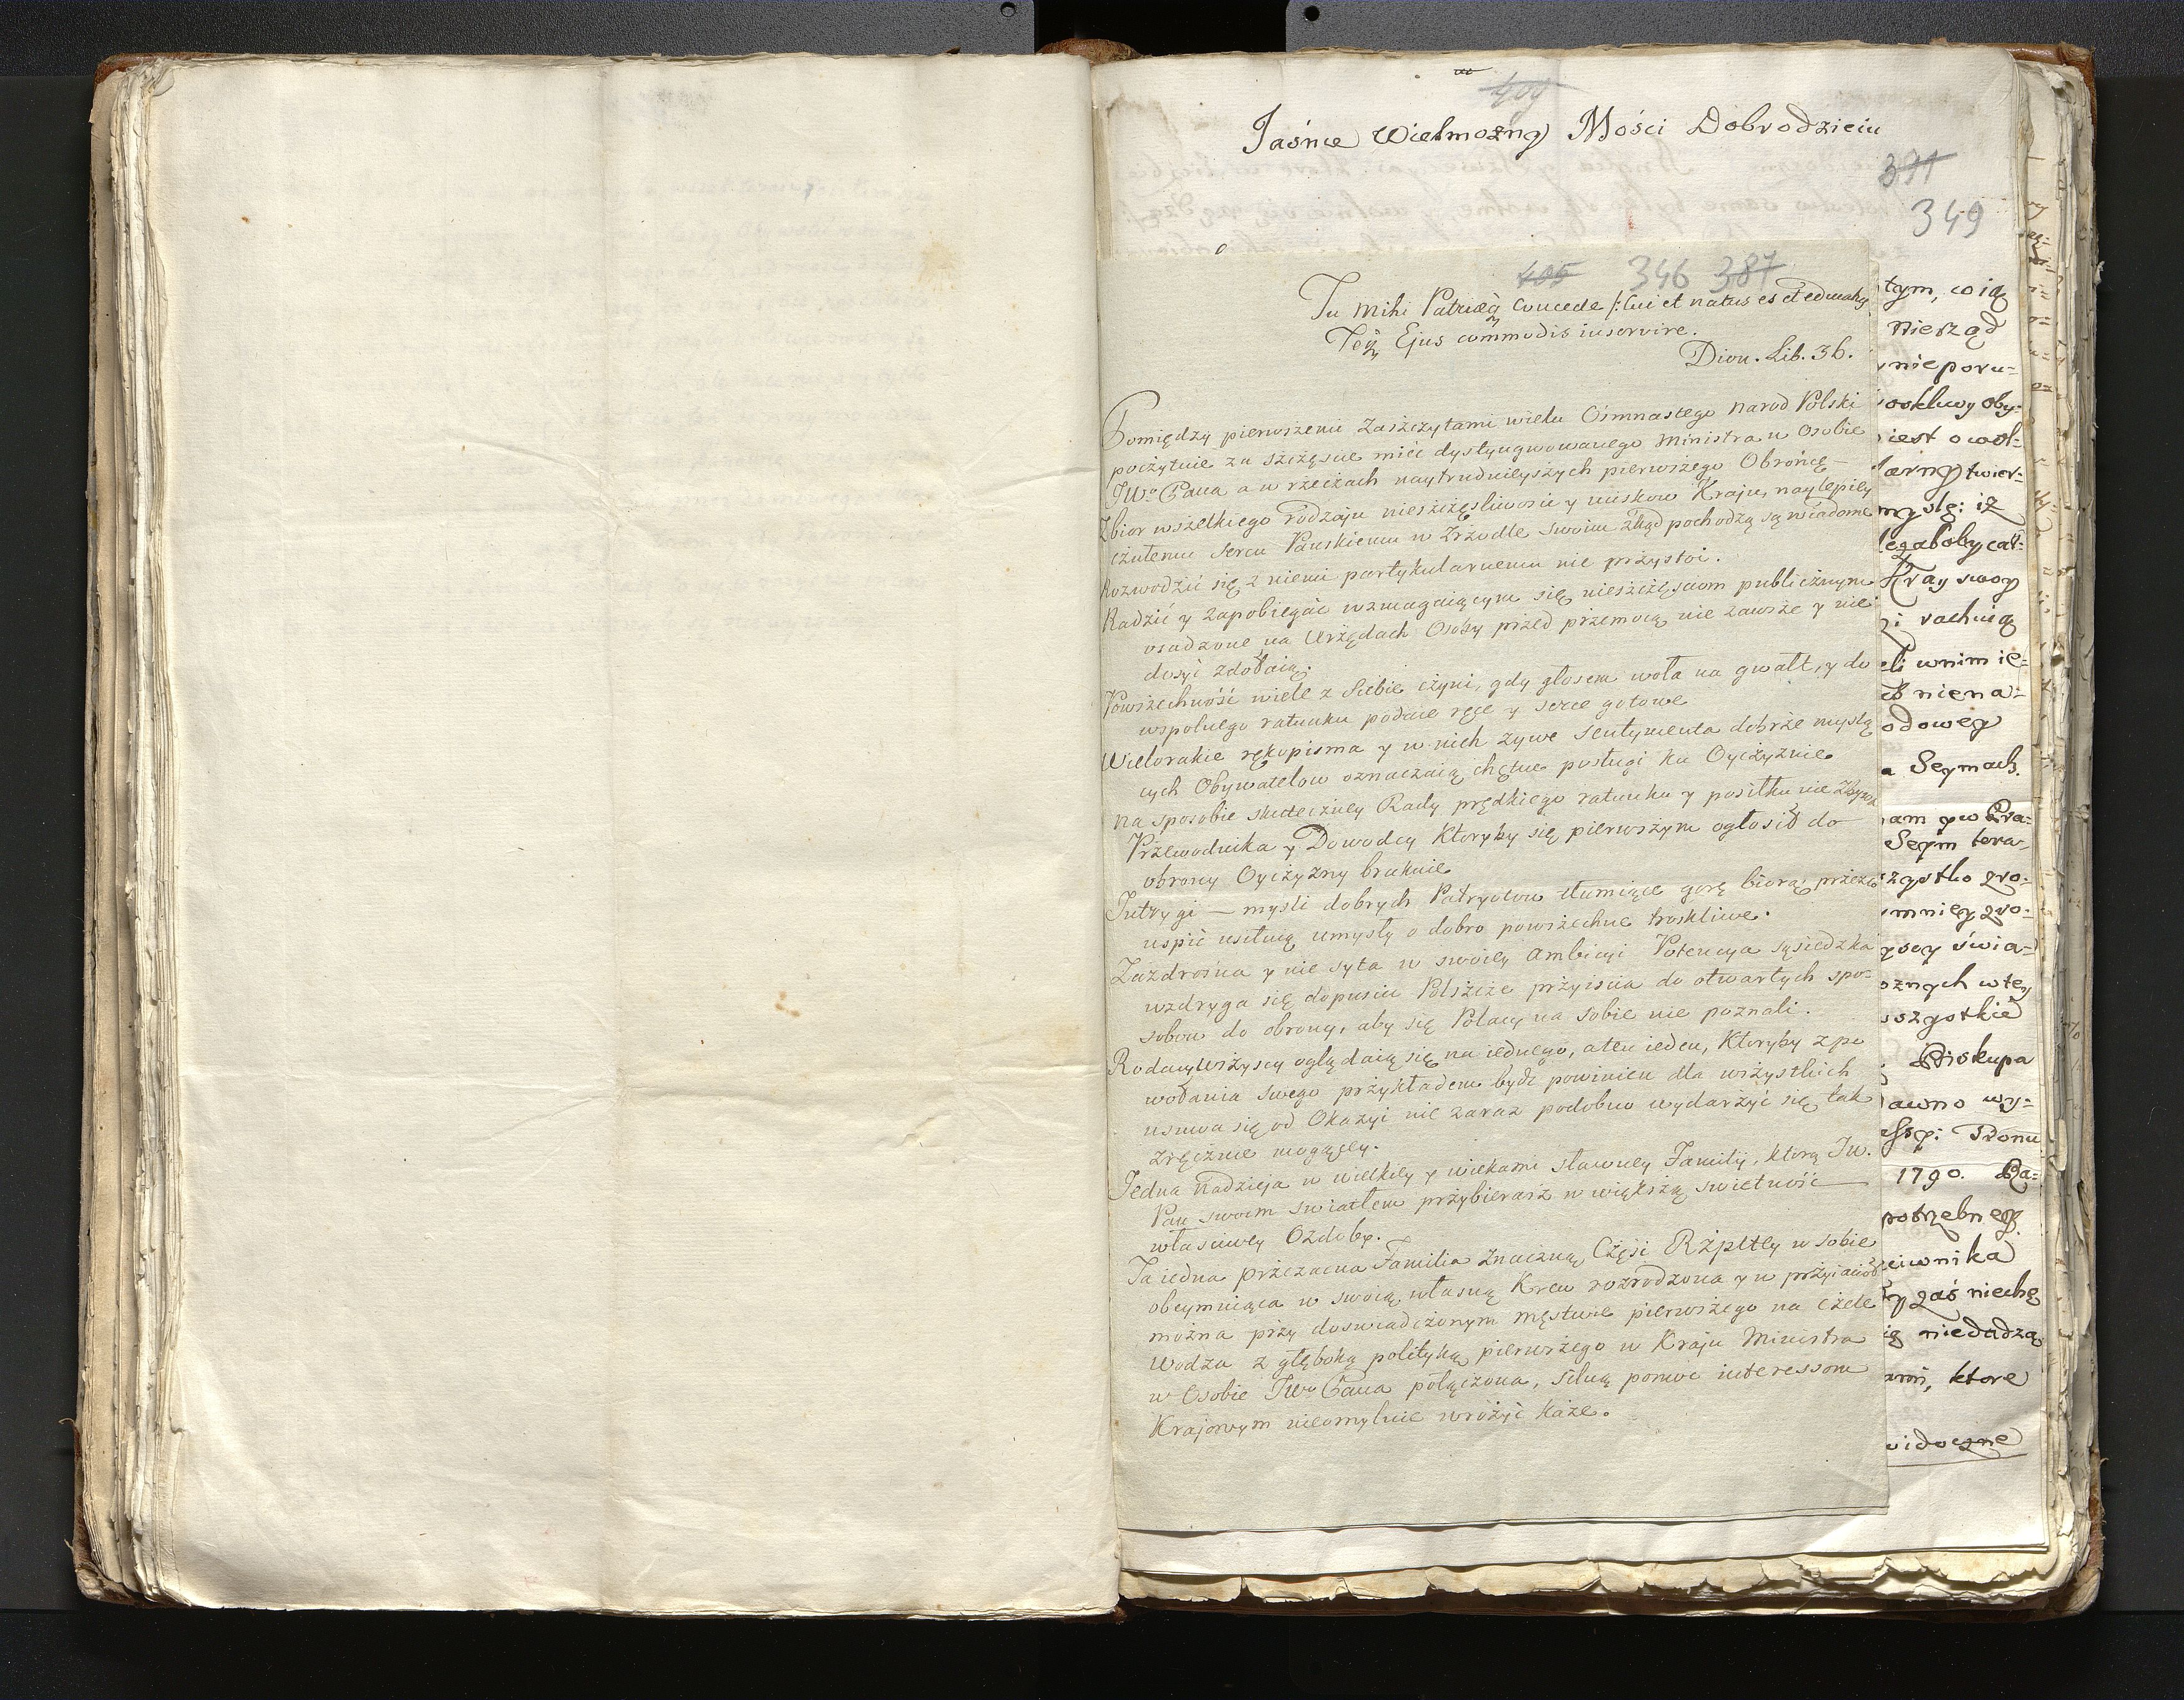 409
Jaśnie Wielmożny Mości Dobrodzieiu
391
349
405 346 387
Tu mihi Patriæq concede /: Cui et natus es et educatq
Teq Ejus commodis inservire.
Dion. Lib. 36.
Pomiędzy pierwszemi Zaszczytami wieku Ośmnastego narod Polski
poczytuie za szczęscie mieć dystyngwowanego Ministra w Osobie
JWo Pana a w rzeczach naytrudnieyszych pierwszego Obrońcę
Zbior wszelkiego rodzaju nieszczęsliwosci y uciskow Kraju, naylepiey
czułemu sercu Pańskiemu w Zrzodle swoim zkąd pochodzą są wiadome
Rozwodzić się z niemi partykularnemu nie przystoi.
Radzić y zapobiegać wzmagaiącym się nieszczęsciom publicznym
osadzone na Urzędach Osoby przed przemocą nie zawsze y nie
dosyć zdołaią.
Powszechność wiele z Siebie czyni, gdy głosem woła na gwałt, y do
wspolnego ratunku podaie ręce y serce gotowe
Wielorakie rękopisma y w nich żywe Sentymenta dobrze myslą
cych Obywatelow oznaczaią chętne posługi ku Oyczyznie
na sposobie skuteczney Rady prędkiego ratunku y posiłku nie
Przewodnika y Dowodcy Ktoryby się pierwszym ogłosił do
obrony Oyczyzny braknie
Intrygi – mysli dobrych Patryotow tłumiące gorę biorą, przez co
uspić usiłuią umysły o dobro powszechne troskliwe.
Zazdrosna y nie syta w swoiey ambicyi Potencya sąsiedzka
wzdryga się dopuscic Polszcze przyiscia do otwartych spo-
sobow do obrony, aby się Polacy na sobie nie poznali.
Rodacy wszyscy oglądaią się na iednego, a ten ieden, Ktoryby z po
wołania swego przykładem bydź powinien dla wszystkich
usuwa się od Okazyi nie zaraz podobno wydarzyć się tak
zręcznie mogącey.
Jedna nadzieja w wielkiey y wiekami sławney Familij, ktorą Jw.
Pan swoim swiatłem przybierasz w większą swietność
właściwey Ozdoby.
Ta iedna przezacna Familia znaczną Częsć Rzpltey w sobie
obeymuiąca w swoią własną Krew rozrodzona y w przyiacioł
można przy doswiadczonym męstwie pierwszego na czele
Wodza z głęboką polityką pierwszego w Kraju Ministra
w Osobie JWo Pana połączona, silną pomoc interessom
Krajowym nieomylnie wrożyć każe.
tym, co ią
nierząd
nieporu=
oskliwy oby=
iest o wol=
twier=
myślę: iż
Kray swoy
i rachuią
eli w nim ie=
niena=
odowey
a Seymach.
Seym tera=
szystko zro=
mniey zro=
świa=
oznych w tey
szystkie
Biskupa
awno wy=
Pronu
1790. Ba=
potrzebney
ciwnika
zaś niechę
ią niedadzą
ami, ktore
widoczne